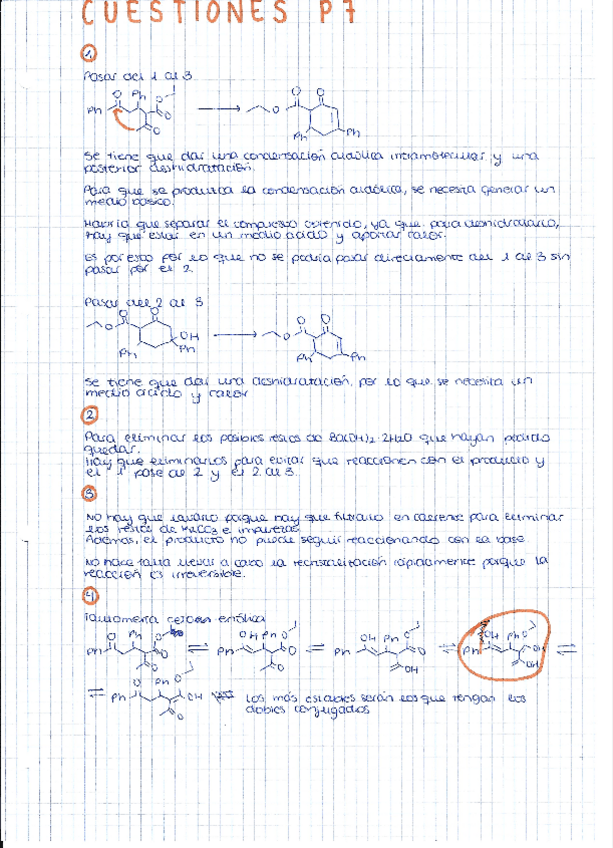 CUESTIONES P7
1
Pasar del 1 al 3
Se tiene que dar una condensación aldólica intramolecular y una
posterior deshidratación.
Para que se produzca la condensación aldólica, se necesita generar un
medio básico.
Habría que separar el compuesto obtenido, ya que para deshidratarlo,
hay que estar en un medio ácido y aportar calor.
Es por esto por lo que no se podría pasar directamente del 1 al 3 sin
pasar por el 2.
Pasar del 2 al 3
Se tiene que dar una deshidratación, por lo que se necesita un
medio ácido y calor
2
Para eliminar los posibles restos de Ba(OH)2·2H2O que hayan podido
quedar.
Hay que eliminarlos para evitar que reaccionen con el producto y
el 1 pase de 2 y el 2 al 3.
3
No hay que lavarlo porque hay que filtrarlo en caliente para eliminar
los restos de e impurezas.
Además, el producto no puede seguir reaccionando con la base.
No hace falta llevar a cabo la recristalización rápidamente porque la
reacción es irreversible.
4
Tautomería ceto-enólica
Los más estables serán los que tengan los
dobles conjugados